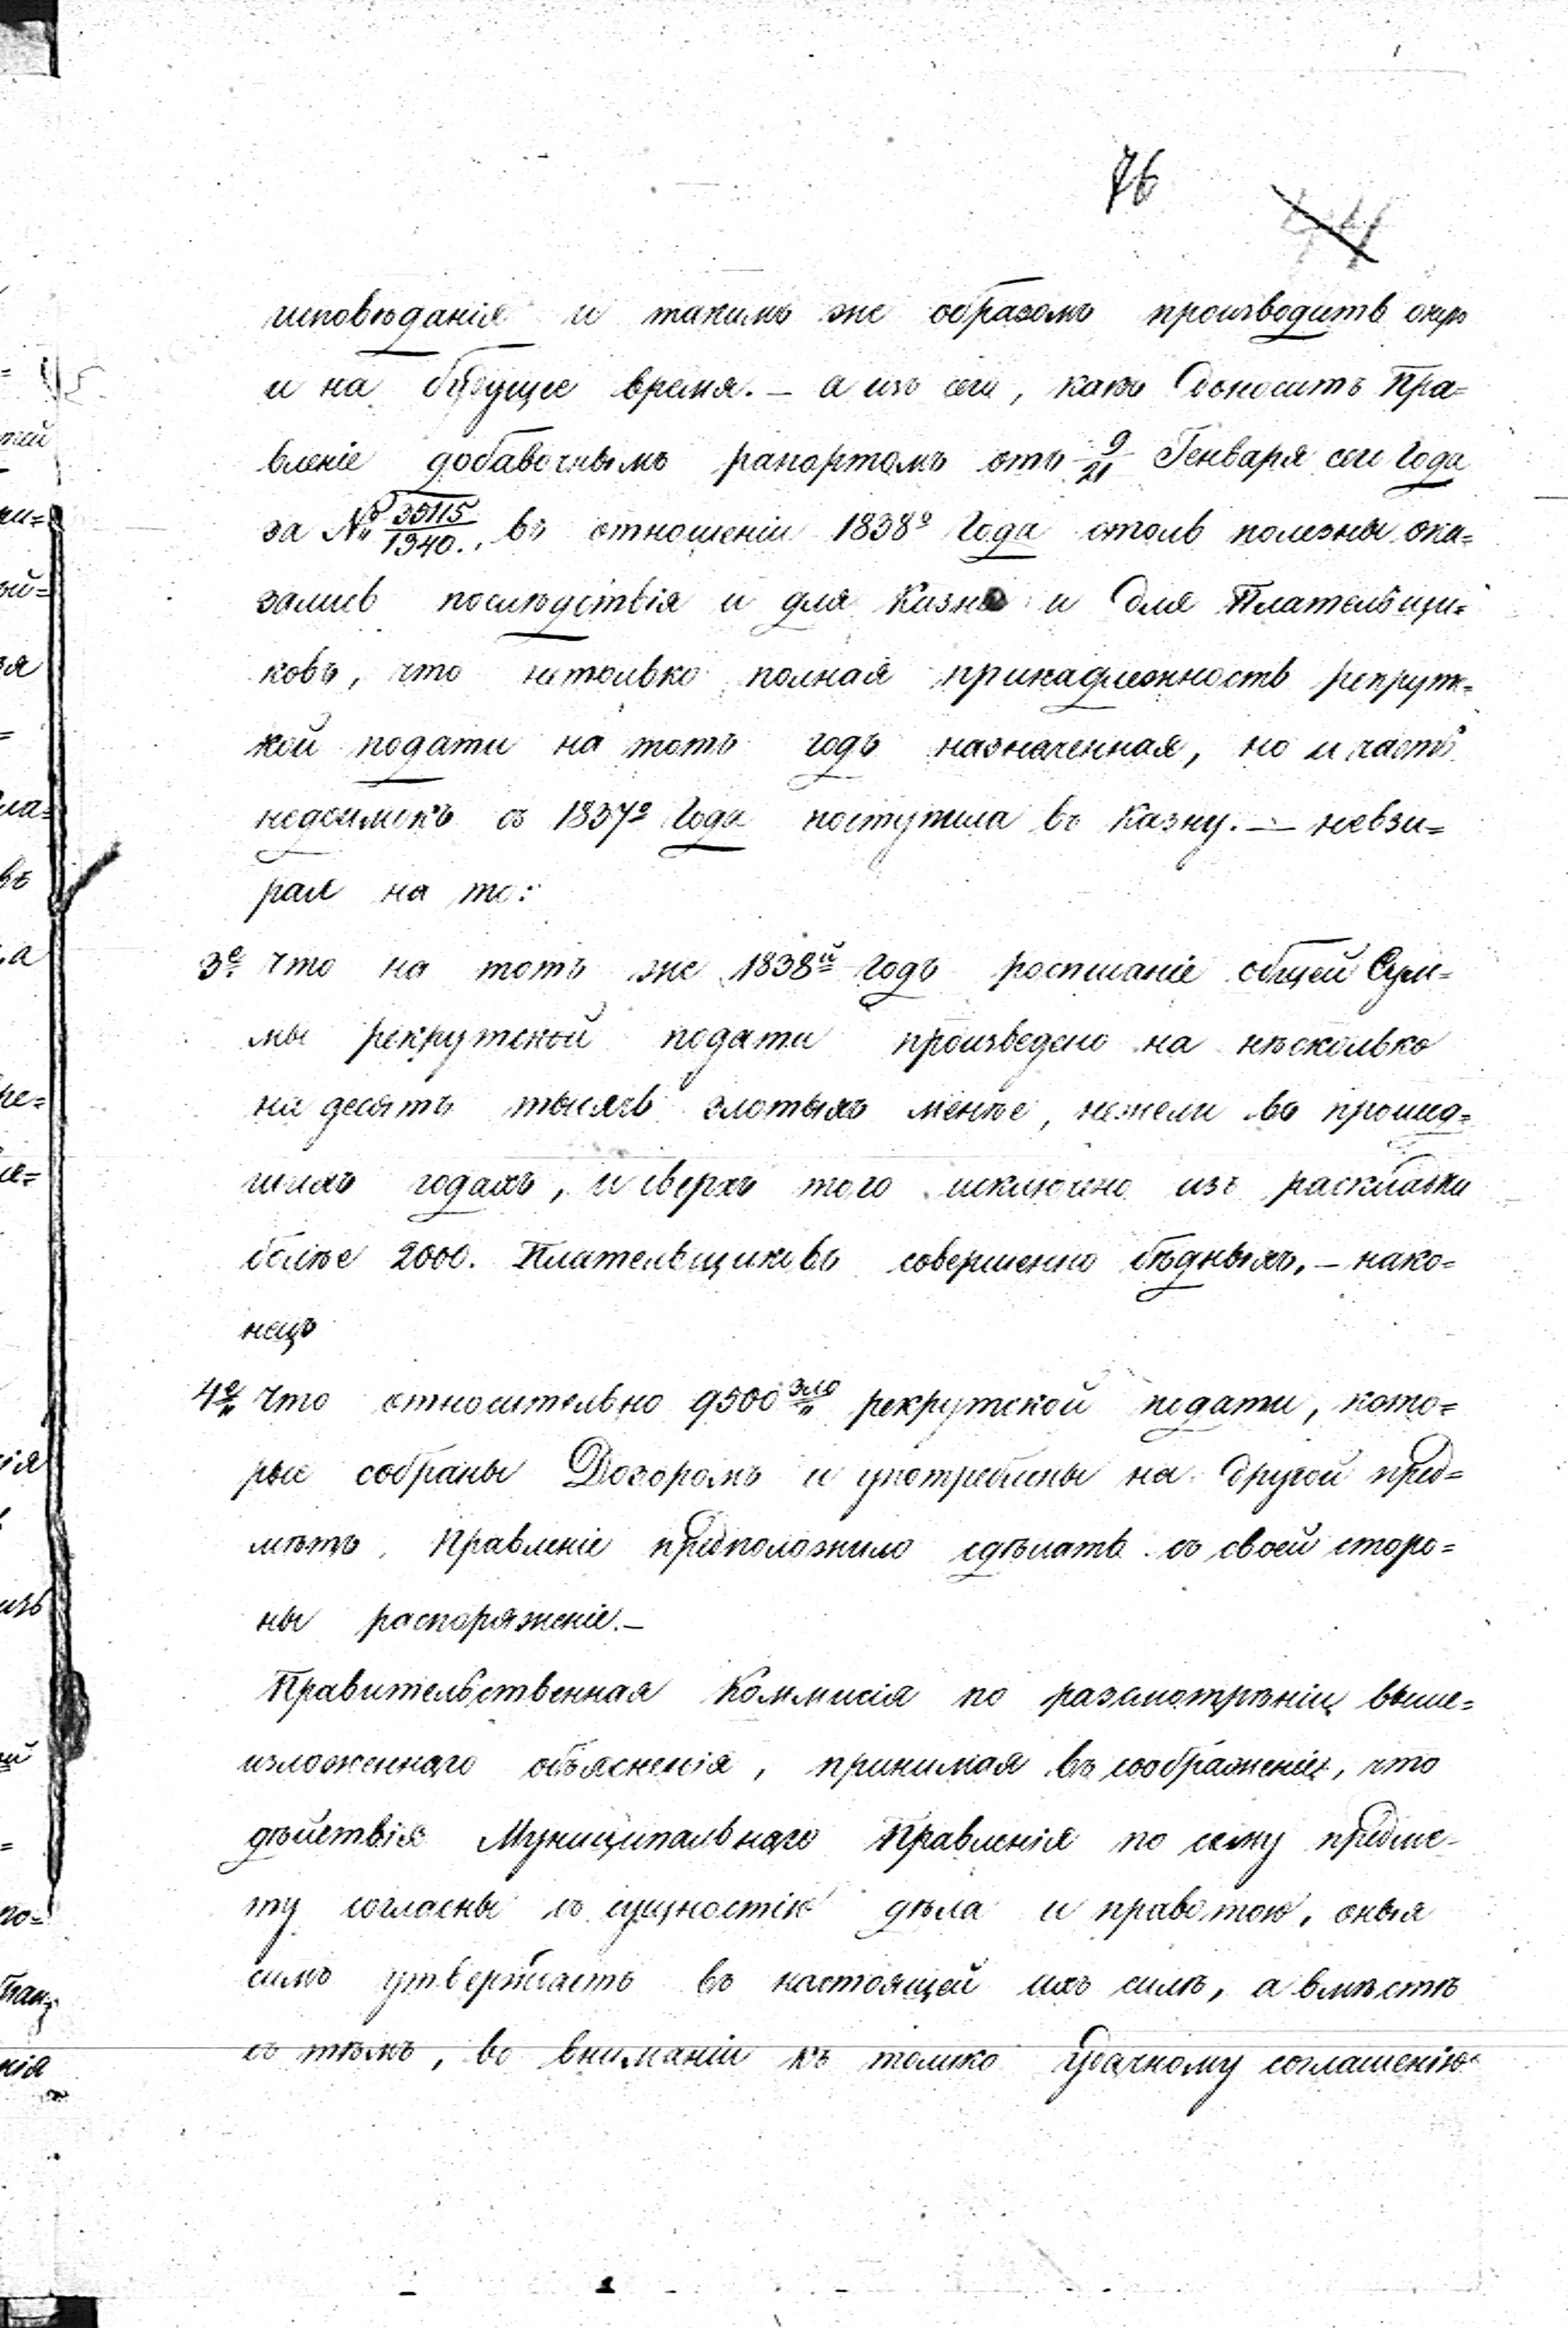 76
44
исповѣданія и такимъ же образомъ производить оную
и на будущее время. — а изъ сего, какъ доноситъ Пра=
вленіе добавочнымъ рапортомъ отъ 9/21 Генваря сего Года
за № 35115/1340., въ отношеніи 1838º Года столь полезны ока=
зались послѣдствія и для Казны и для Плательщи=
ковъ, что нетолько полная принадлежность рекрут=
кой подати на тотъ годъ назначенная, но и часть
недоимокъ съ 1837º Года поступила въ Казну. — невзи=
рая на то:
3е. Что на тотъ же 1838й годъ росписаніе общей Сум=
мы рекрутской подати произведено на нѣсколько
на десять тысячъ злотыхъ менѣе, нежели въ прошед=
шихъ годахъ, и сверхъ того исключено изъ раскладки
болѣе 2000. Плательщиковъ совершенно бѣдныхъ. — нако=
нецъ
4е Что относительно 9500 зло рекрутской подати, кото=
рые собраны Дозоромъ и употреблены на другой пред=
мѣтъ, Правленіе предположило сдѣлать съ своей сторо=
ны распоряженіе. —
Правительственная Коммисія по разсмотрѣніи выше=
изложеннаго объясненія, принимая въ соображеніе, что
дѣйствія Муниципальнаго Правленія по сему предме=
ту согласны съ сущностію дѣла и правотою, оныя
симъ утверждаетъ въ настоящей ихъ силѣ, а вмѣстѣ
съ тѣмъ, во вниманіи къ толико удачному соглашенію